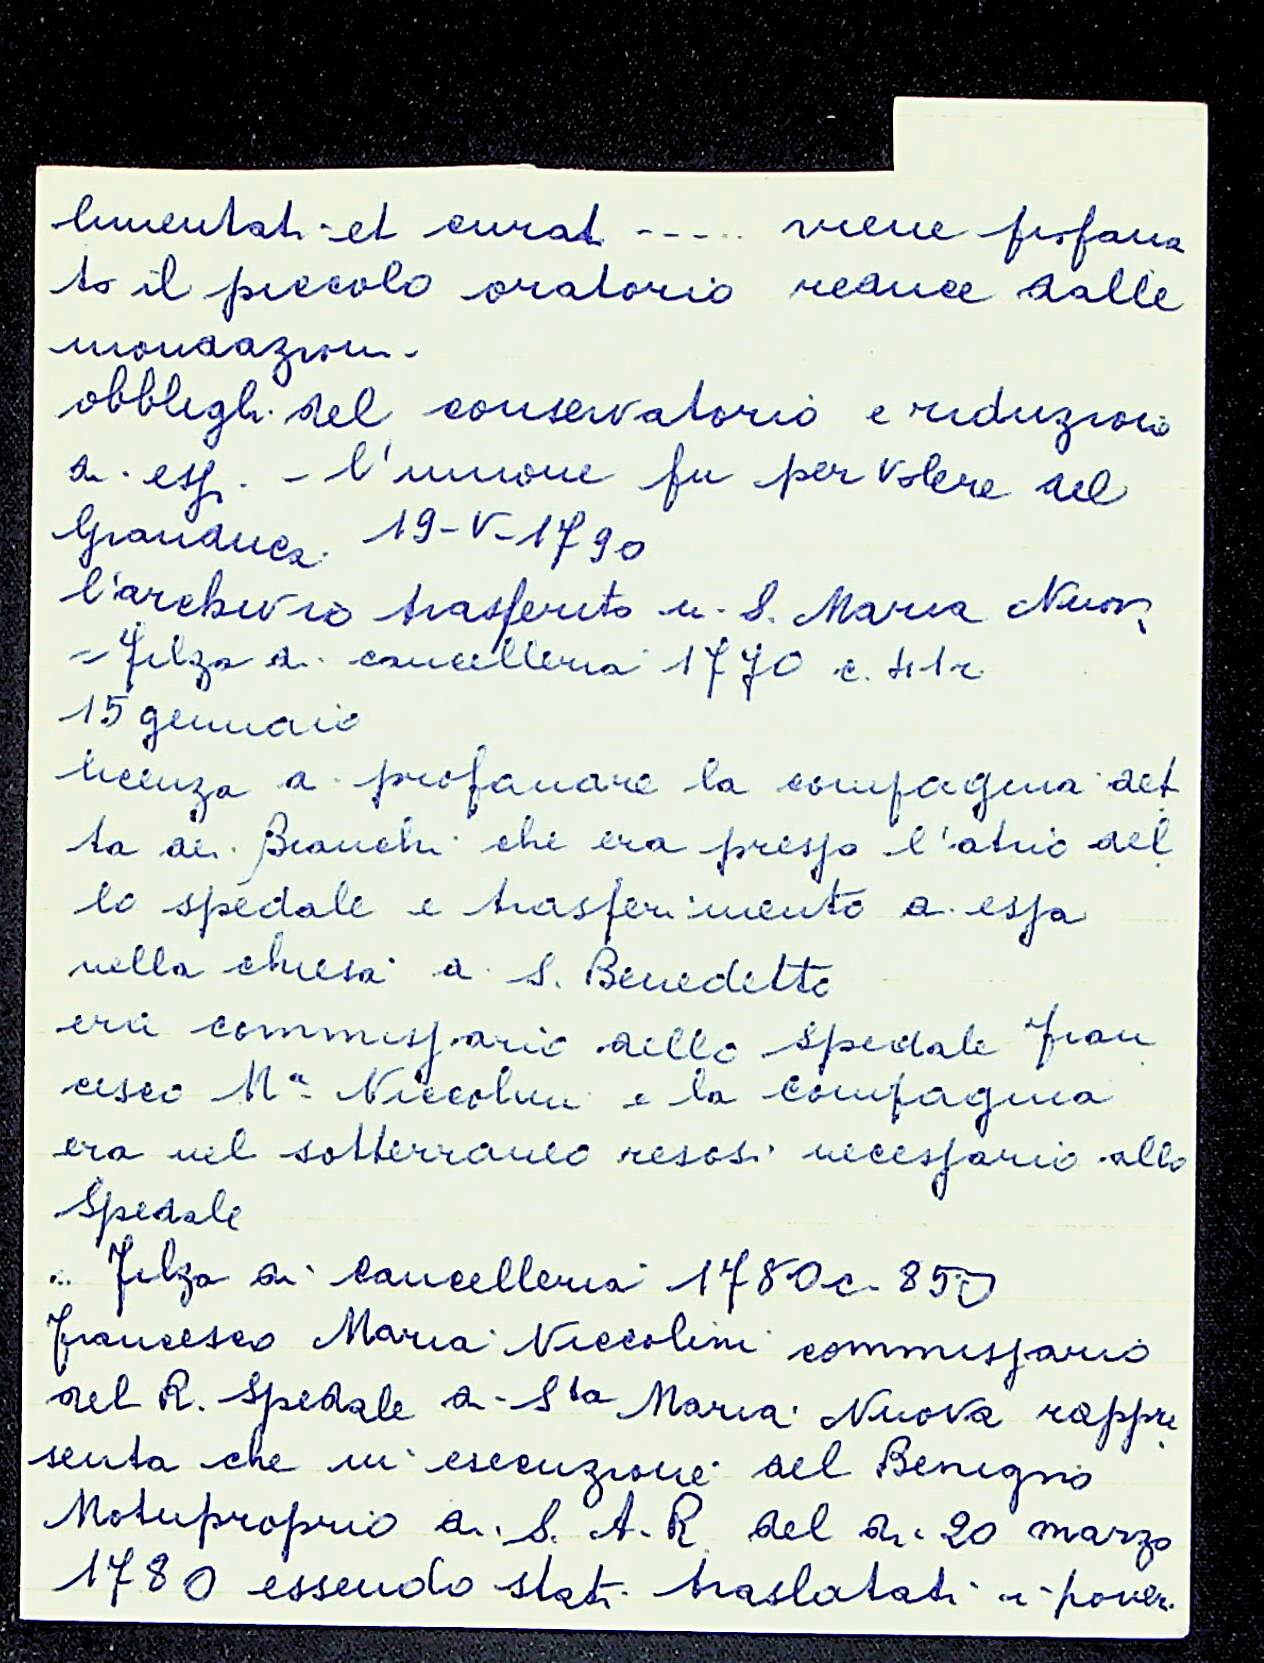 limentati et curati ----- viene profana
to il piccolo oratorio reduce dalle
inondazioni -
obblighi del conservatorio e riduzioni
di essi. - l'unione fu per volere del
Granduca. 19-V-1790
l'archivio trasferito in S. Maria Nuova
= Filza di cancelleria 1770 c. 41r
15 gennaio
licenza di profanare la compagnia det
ta dei Bianchi che era presso l'atrio del
lo spedale e trasferimento di essa
nella chiesa di S. Benedetto
era commissario dello Spedale Fran
cesco Mª Niccolini e la Compagnia
era nel sotterraneo resosi necessario allo
Spedale
.. Filza di Cancelleria 1780 c. 850
Francesco Maria Niccolini commissario
del R. Spedale di Sta Maria Nuova rappre
senta che in esecuzione del Benigno
Motuproprio di S. A. R. del di 20 marzo
1780 essendo stati traslatati i poveri